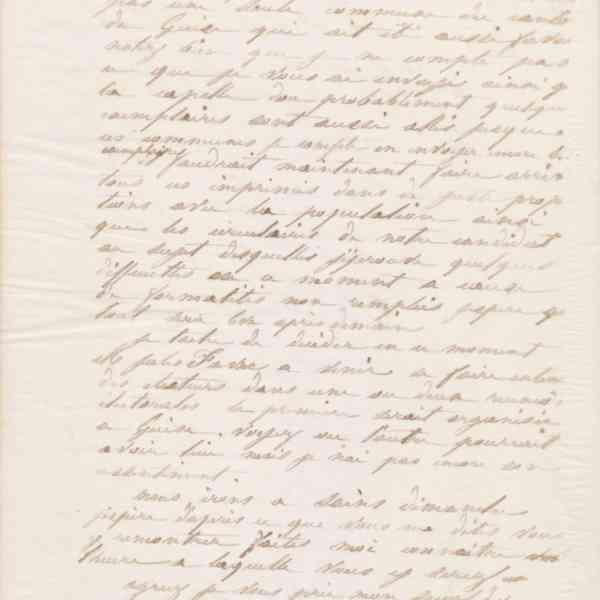 pas une seule commune du canto
de Guise qui ait été aussi favo
notez bien que je ne compte pas
ce que je vous ai envoyé ainsi q
la capelle dou probablement quelque
exemplaires sont aussi allés jusque a
ces communes je compte en envoyer encore
faudrait maintenant faire arriv
tous ces imprimés dans de juste propo
tions avec la population ainsi
que les circulaires de notre candidat
au sujet desquelles j'éprouve quelques
difficultés en ce moment a cause
de formalités non remplies j'espere q
tout sera bon apres demain
je tache de decider en ce moment
Mr Jules Favre a venir se faire enten
des electeurs dans une ou deux reunions
electorales la premiere serait organisée
a Guise. Voyez ou l'autre pourrait
avoir lieu mais je n'ai pas encore son
assentiment
nous irons a Sains dimanche
j'espere d'apres ce que vous me dites vous
y rencontrer faites moi connaitre
l'heure a laquelle vous y serez
agreez je vous prie mon